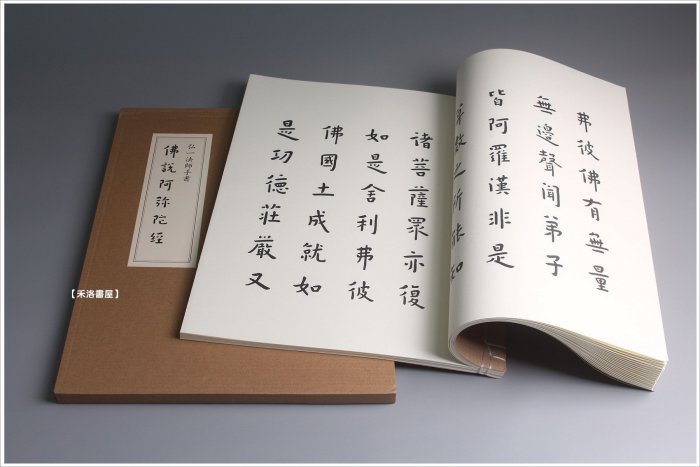 弘一法師手書
佛說阿弥陀經
【禾洛書屋】
弗彼佛有無量
無邊聲聞弟子
皆阿羅漢非是
算數之所能知
諸菩薩眾亦復
如是舍利弗彼
佛國土成就如
是功德莊嚴又